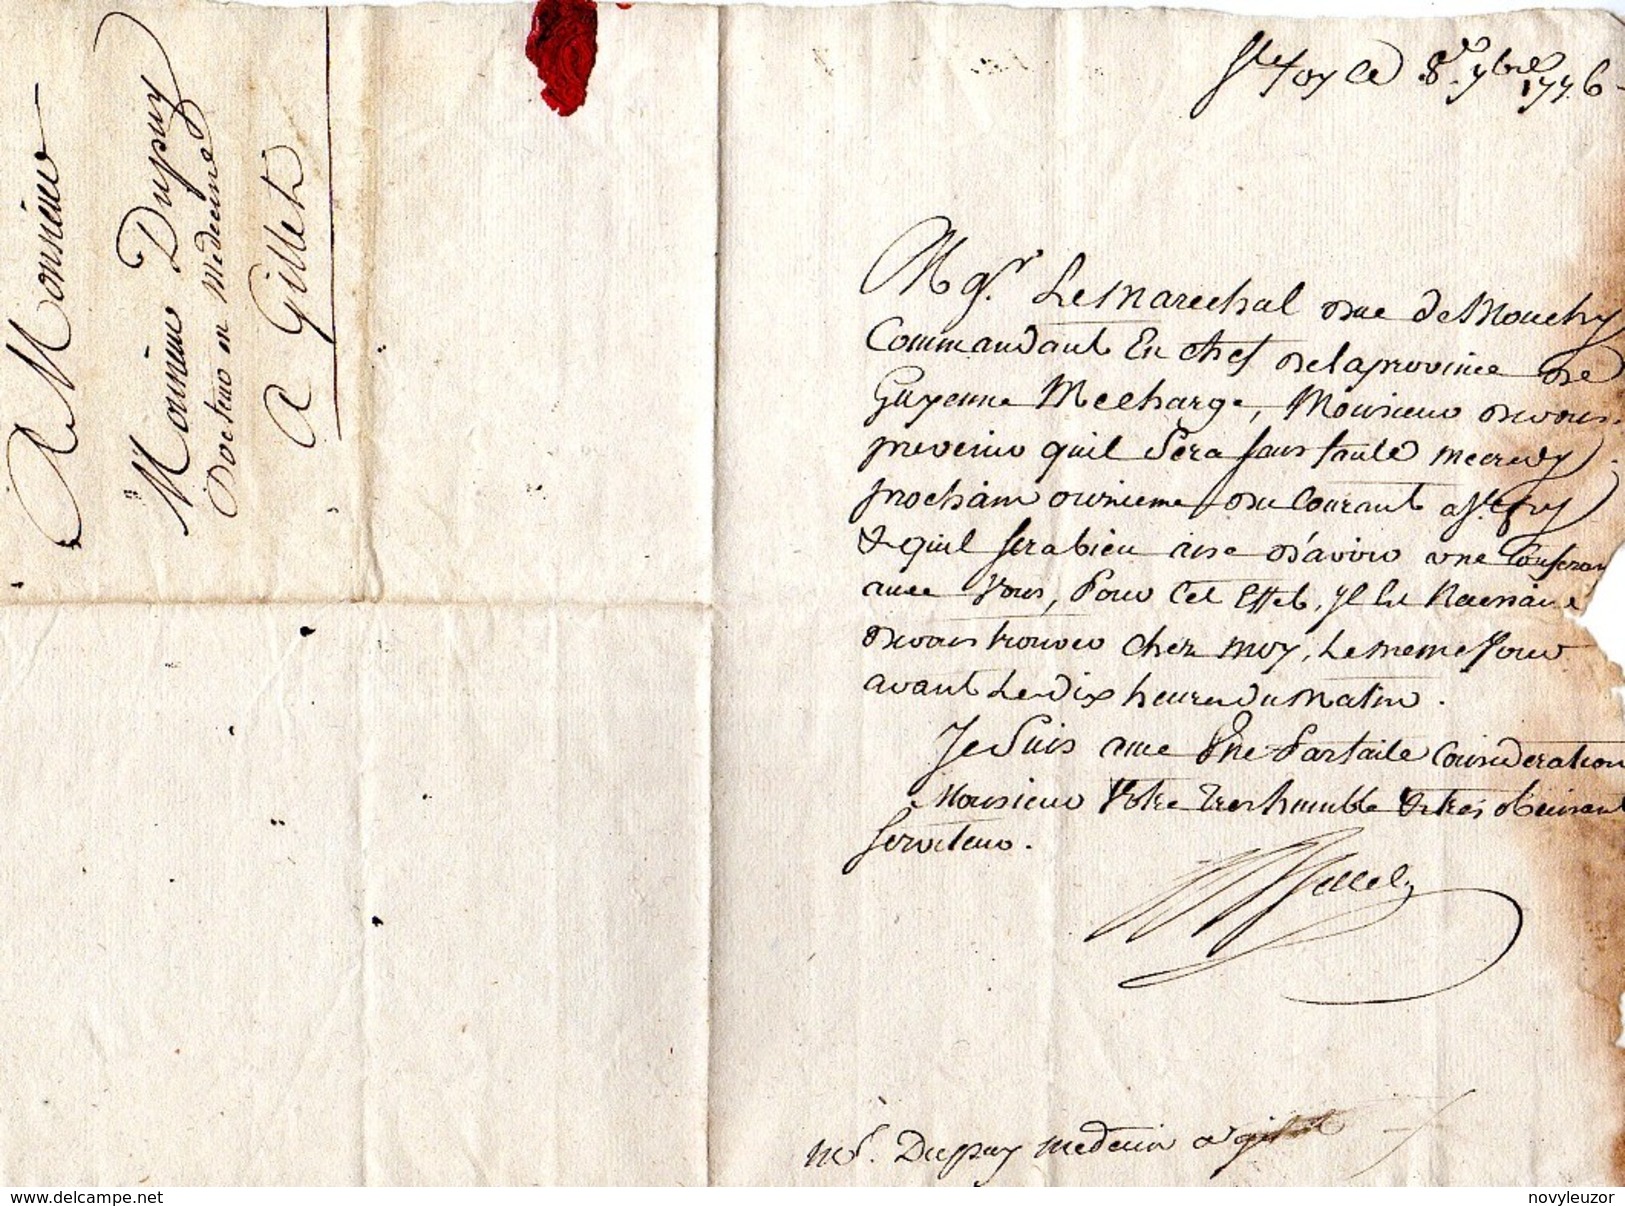 A Monsieur
Monsieur Dupuy
Docteur en Medecine
A Gillet
Ste foy Ce 8e 7bre 1776
Mgr. Le Marechal duc de Mouchy
Commandant En chef de la province de
Guyenne Me charge, Monsieur de vous
prevenir quil Sera sans faute mecredy
prochain onzieme du Courant a Ste foy
& quil sera bien aise d'avoir une Conferan
avec Vous, Pour Cet Effet, Il Est Necessaire
de vous trouver chez moy, Le meme Jour
avant Le dix heures du Matin.
Je Suis avec Une Parfaite Consideration
Monsieur Votre Tres humble & tres obeissant
Serviteur.
Mr. Dupuy medecin a
novyleuzor
delcampe.net